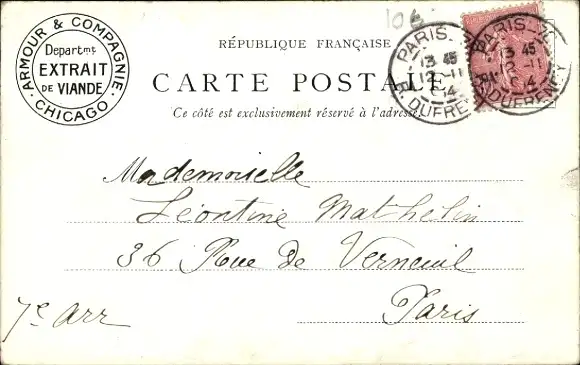 ARMOUR & COMPAGNIE.
Departmt
EXTRAIT
DE VIANDE
CHICAGO.
106
RÉPUBLIQUE FRANÇAISE
CARTE POSTALE
Ce côté est exclusivement réservé à l'adresse
PARIS
13 45
12 -11
R. DUFRENOY
PARIS
13 45
12 -11
R. DUFRENOY
Mademoiselle
Léontine Mathelin
36 Rue de Verneuil
Paris
7e arr